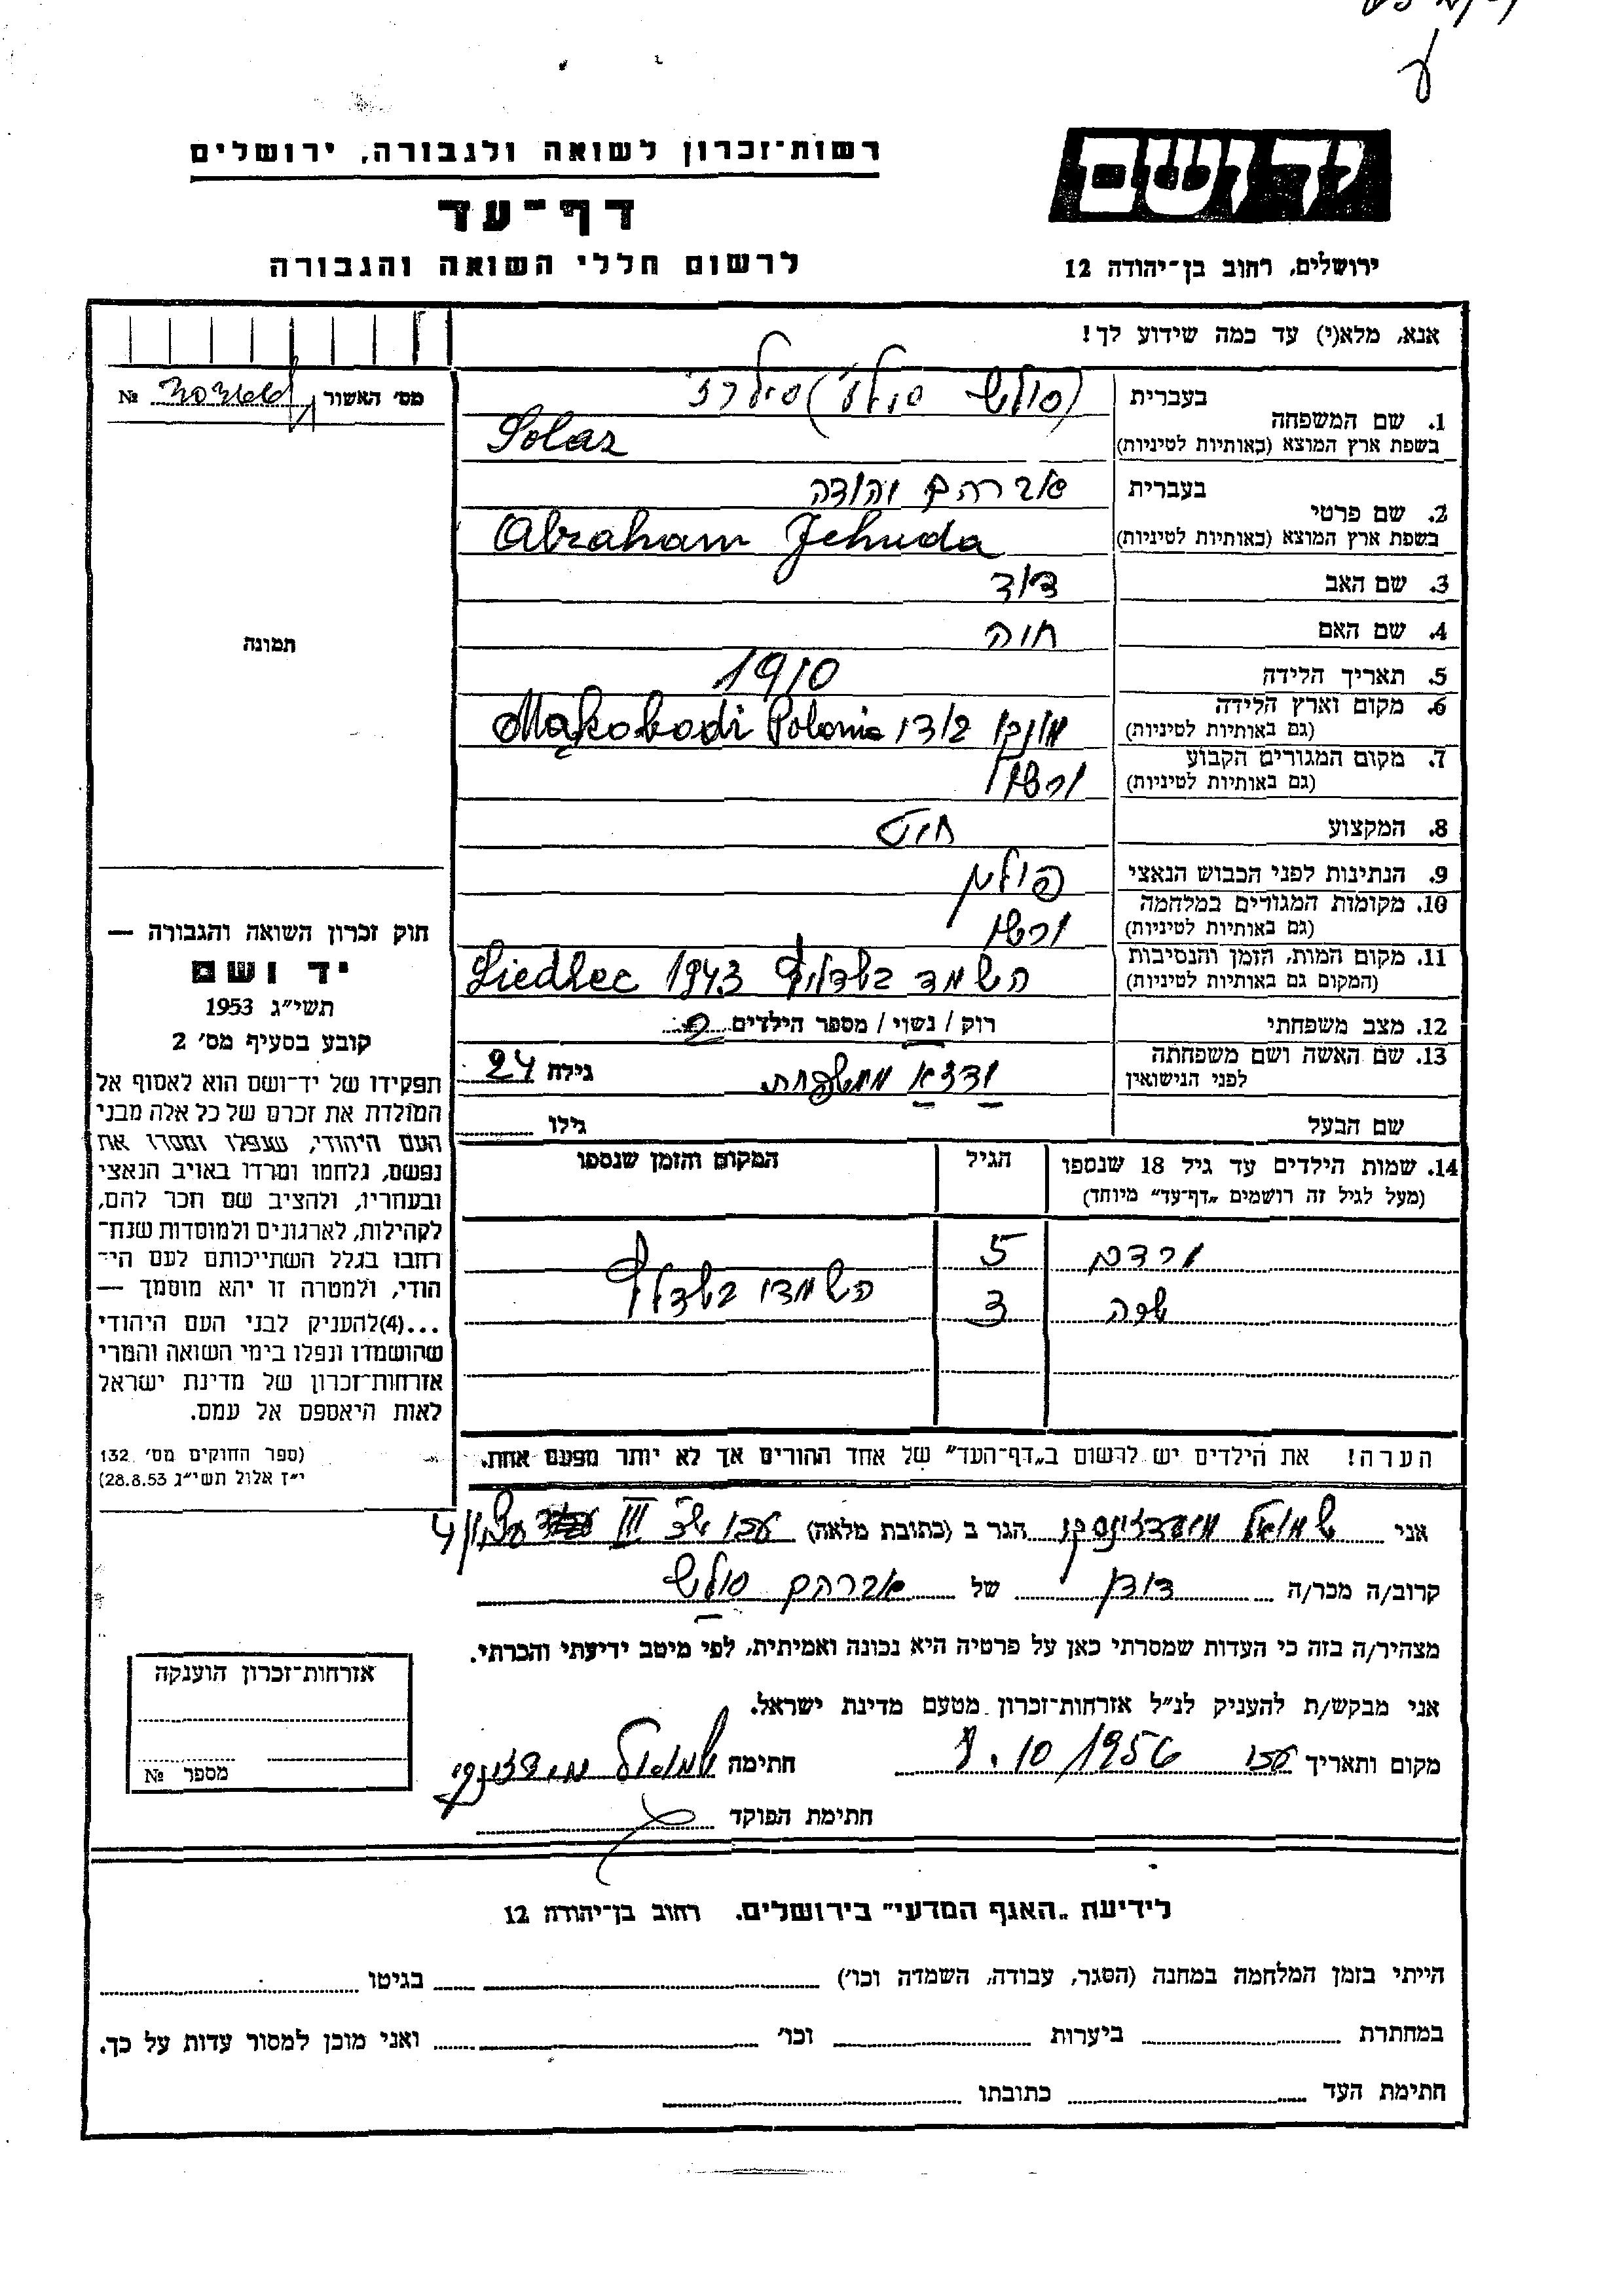 רשות־זכרון לשואה ולגבורה, ירושלים
דף־עד
לרשום חללי השואה והגבורה
יד ושם
ירושלים, רחוב בן־יהודה 12
אנא, מלא(י) עד כמה שידוע לך!
מס׳ האשור № 
תמונה
1. שם המשפחה בעברית
בשפת ארץ המוצא (באותיות לטיניות) Solaz
2. שם פרטי בעברית אברהם יהודה
בשפת ארץ המוצא (באותיות לטיניות) Abraham Jehuda
3. שם האב דוד
4. שם האם חוה
5. תאריך הלידה 1910
6. מקום וארץ הלידה
(גם באותיות לטיניות) Mąkobodi Polonia
7. מקום המגורים הקבוע ורשה
(גם באותיות לטיניות)
8. המקצוע חיט
9. הנתינות לפני הכבוש הנאצי פולין
10. מקומות המגורים במלחמה
(גם באותיות לטיניות)
11. מקום המות, הזמן והנסיבות
(המקום גם באותיות לטיניות) השמד בשדליץ 1943 Siedlec
12. מצב משפחתי רוק / נשוי / מספר הילדים 2
13. שם האשה ושם משפחתה
לפני הנישואין ממשפחת גילה 24
שם הבעל גילו
14. שמות הילדים עד גיל 18 שנספו הגיל המקום והזמן שנספו
(מעל לגיל זה רושמים „דף־עד” מיוחד)
5
שרה 3 השמדו בשדליץ
הערה! את הילדים יש לרשום ב„דף־העד” של אחד ההורים אך לא יותר מפעם אחת.
חוק זכרון השואה והגבורה —
יד ושם
תשי״ג 1953
קובע בסעיף מס׳ 2
תפקידו של יד־ושם הוא לאסוף אל
המולדת את זכרם של כל אלה מבני
העם היהודי, שנפלו ומסרו את
נפשם, נלחמו ומרדו באויב הנאצי
ובעוזריו, ולהציב שם וזכר להם,
לקהילות, לארגונים ולמוסדות שנח־
רבו בגלל השתייכותם לעם הי־
הודי, ולמטרה זו יהא מוסמך —
...(4)להעניק לבני העם היהודי
שהושמדו ונפלו בימי השואה והמרי
אזרחות־זכרון של מדינת ישראל
לאות היאספם אל עמם.
(ספר החוקים מס׳ 132
י״ז אלול תשי״ג 28.8.53)
אני שמואל הגר ב (כתובת מלאה) עכו III
קרוב/ה מכר/ה דודן של אברהם סולש
מצהיר/ה בזה כי העדות שמסרתי כאן על פרטיה היא נכונה ואמיתית, לפי מיטב ידיעתי והכרתי.
אני מבקש/ת להעניק לנ״ל אזרחות־זכרון מטעם מדינת ישראל.
מקום ותאריך עכו 10/1956 חתימה שמואל
חתימת הפוקד
אזרחות־זכרון הוענקה
מספר №
לידיעת „האגף המדעי” בירושלים, רחוב בן־יהודה 12
הייתי בזמן המלחמה במחנה (הסגר, עבודה, השמדה וכו׳) בגיטו
במחתרת ביערות וכו׳ ואני מוכן למסור עדות על כך.
חתימת העד כתובתו